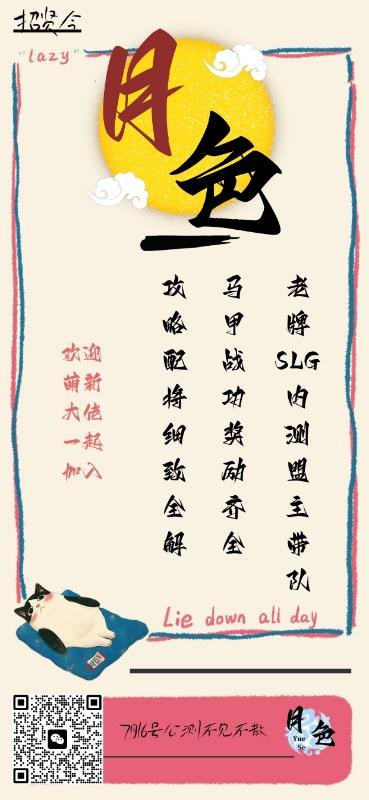 招贤令
"lazy"
月色
老牌SLG内测盟主带队
马甲战功奖励齐全
攻略配将细致全解
欢迎
萌新
大佬
一起
加入
Lie down all day
7月16号公测不见不散
月色
Yue
Se